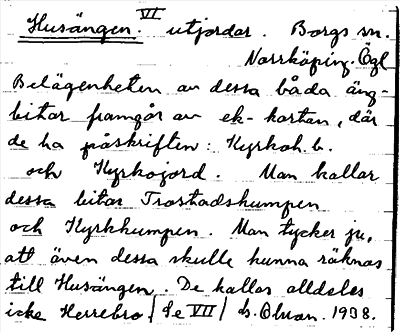 VI
Husängen. utjordar. Borgs sn.
Norrköping. Ögl
Belägenheten av dessa båda äng-
bitar framgår av ek-kartan, där
de ha påskriften: Kyrkoh. b.
och Kyrkojord. Man kallar
dessa bitar Trostadshumpen
och Kyrkhumpen. Man tycker ju,
att även dessa skulle kunna räknas
till Husängen. De kallas alldeles
icke Herrebro/Se VII/ 1938.